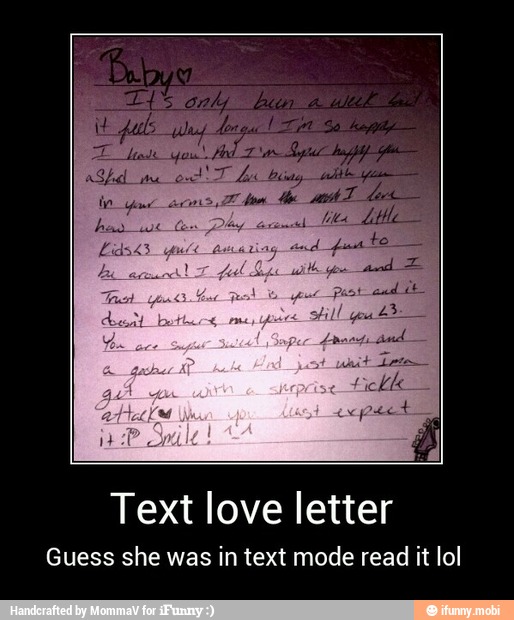 Baby♡
It's only been a week but
it feels way longer! I'm so happy
I have you! And I'm Super happy you
asked me out! I love being with you
in your arms, I love
how we can play around like little
Kids<3 you're amazing and fun to
be around! I feel Safe with you and I
Trust you<3. Your past is your past and it
doesn't bother me, you're still you<3.
You are super sweet, Super funny, and
a goober XP hehe And just wait Imma
get you with a surprise tickle
attack When you least expect
it :P Smile! ^_^
Text love letter
Guess she was in text mode read it lol
Handcrafted by MommaV for iFunny :)
ifunny.mobi